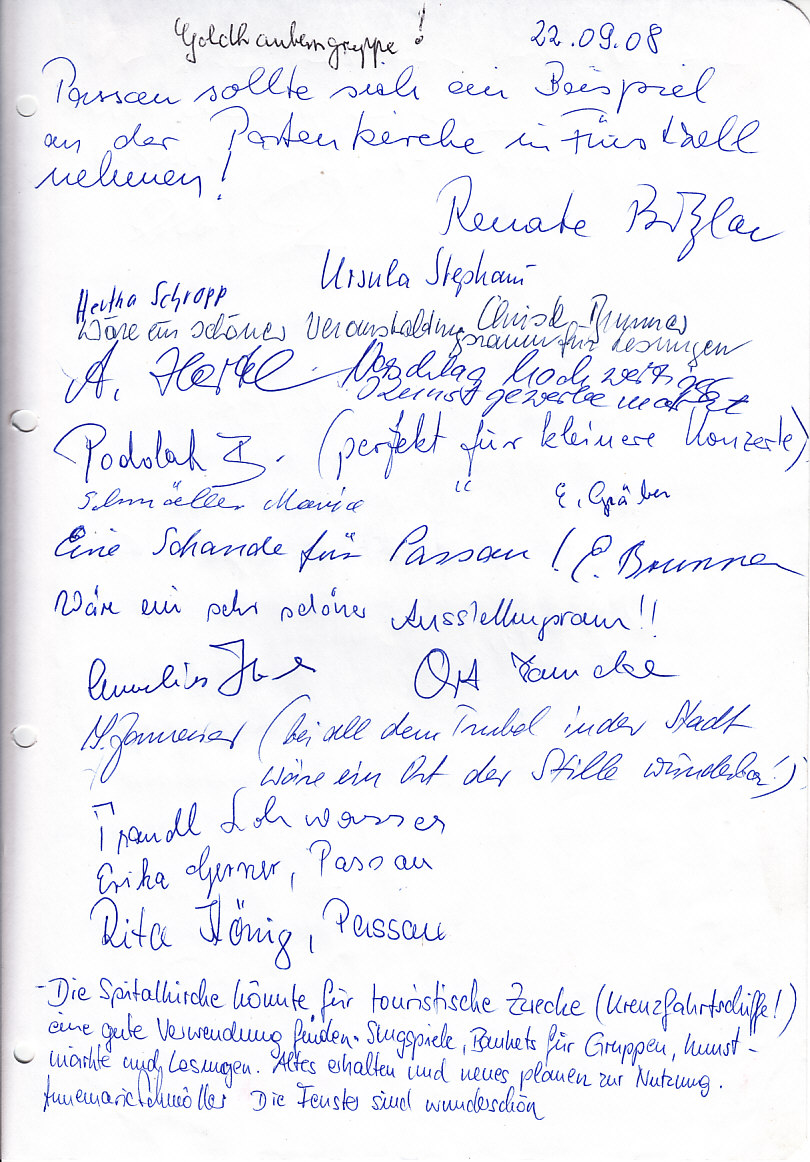 Goldhaubengruppe!
22.09.08
Passau sollte sich ein Beispiel
an der Portenkirche in Fürstzell
nehmen!
Renate
Ursula Stephani
Hertha Schropp
Christl Brunner
Wäre ein schöner Veranstaltungsraum für Lesungen
A. Hertl Vorschlag hochwertiger
Kunstgewerbemarkt
Podolak I. (perfekt für kleinere Konzerte)
Schmöller Maria " E. Gräber
Eine Schande für Passau! E. Brunner
Wäre ein sehr schöner Ausstellungsraum!!
Annelies
Ort
(bei all dem Trubel in der Stadt
wäre ein Ort der Stille wunderbar!)
Traudl Lohwasser
Erika Gerner, Passau
Rita König, Passau
- Die Spitalkirche könnte für touristische Zwecke (Kreuzfahrtschiffe!)
eine gute Verwendung finden. Singspiele, Bankets für Gruppen, Kunst-
märkte und Lesungen. Altes erhalten und neues planen zur Nutzung.
Annemarie Schmöller Die Fenster sind wunderschön